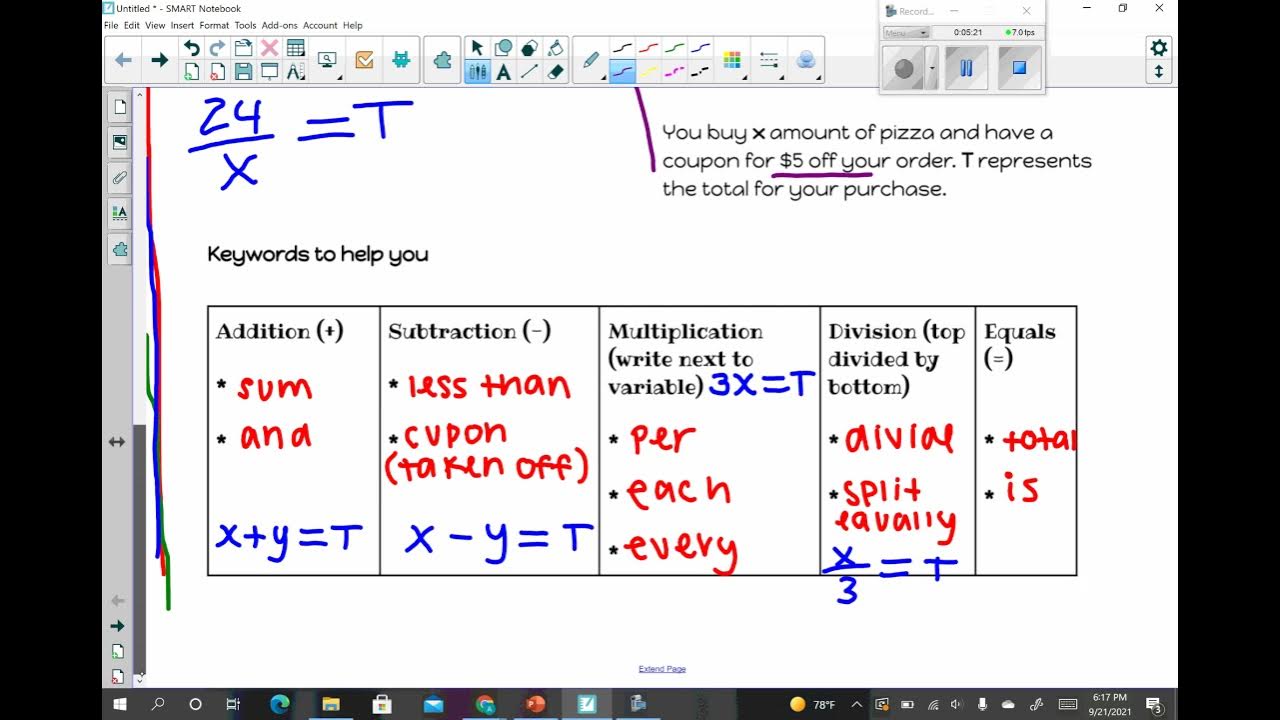 Untitled * - SMART Notebook
File Edit View Insert Format Tools Add-ons Account Help
Record...
Menu
0:05:21
7.0 fps
24
x
= T
You buy x amount of pizza and have a
coupon for $5 off your order. T represents
the total for your purchase.
Keywords to help you
Addition (+)
* sum
* and
x+y=T
Subtraction (-)
* less than
* cupon
(taken off)
x - y = T
Multiplication
(write next to
variable) 3x=T
* per
* each
* every
Division (top
divided by
bottom)
* divide
* split
equally
x
3
= T
Equals
(=)
* total
* is
Extend Page
78°F
6:17 PM
9/21/2021
3